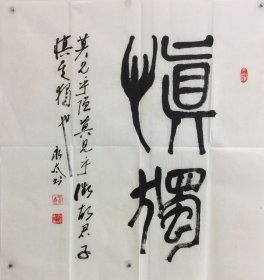 慎獨
莫見乎隱莫見乎微故君子
慎其獨也